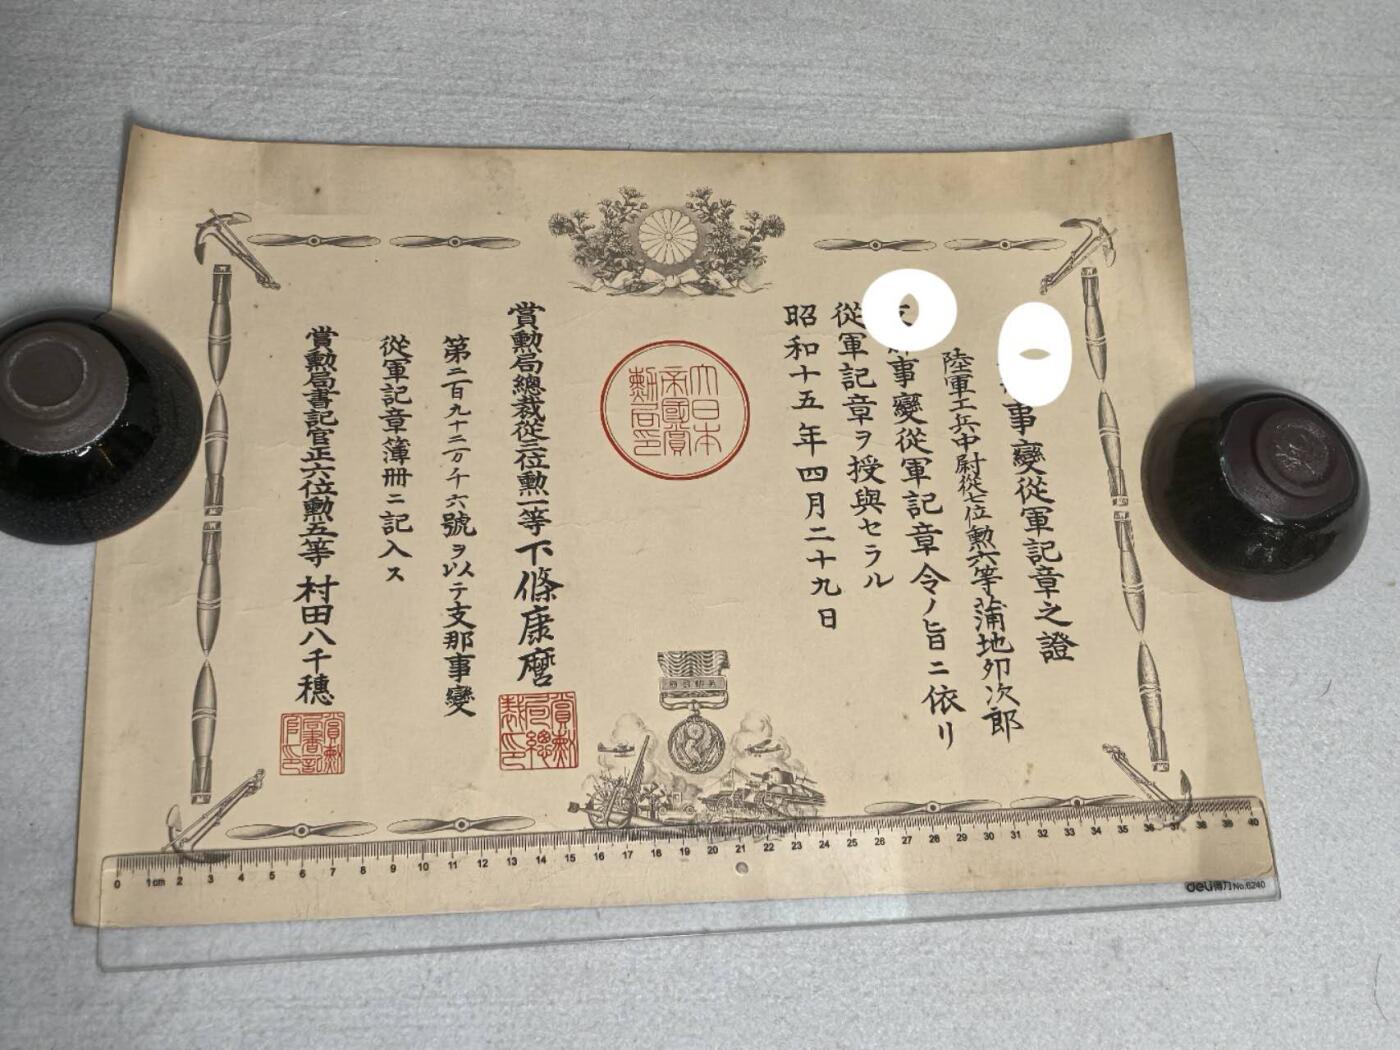 事變從軍記章之證
陸軍工兵中尉從七位勲六等蒲地卯次郎
事變從軍記章令ノ旨ニ依リ
從軍記章ヲ授與セラル
昭和十五年四月二十九日
大日本
帝國賞
勲局印
賞勲局總裁從三位勲一等下條康麿
賞勲
局總
裁印
第二百九十二万千六號ヲ以テ支那事變
從軍記章簿冊ニ記入ス
賞勲局書記官正六位勲五等村田八千穗
賞勲
局書記
官印
0 1cm 2 3 4 5 6 7 8 9 10 11 12 13 14 15 16 17 18 19 20 21 22 23 24 25 26 27 28 29 30 31 32 33 34 35 36 37 38 39 40
deli得力 No.6240